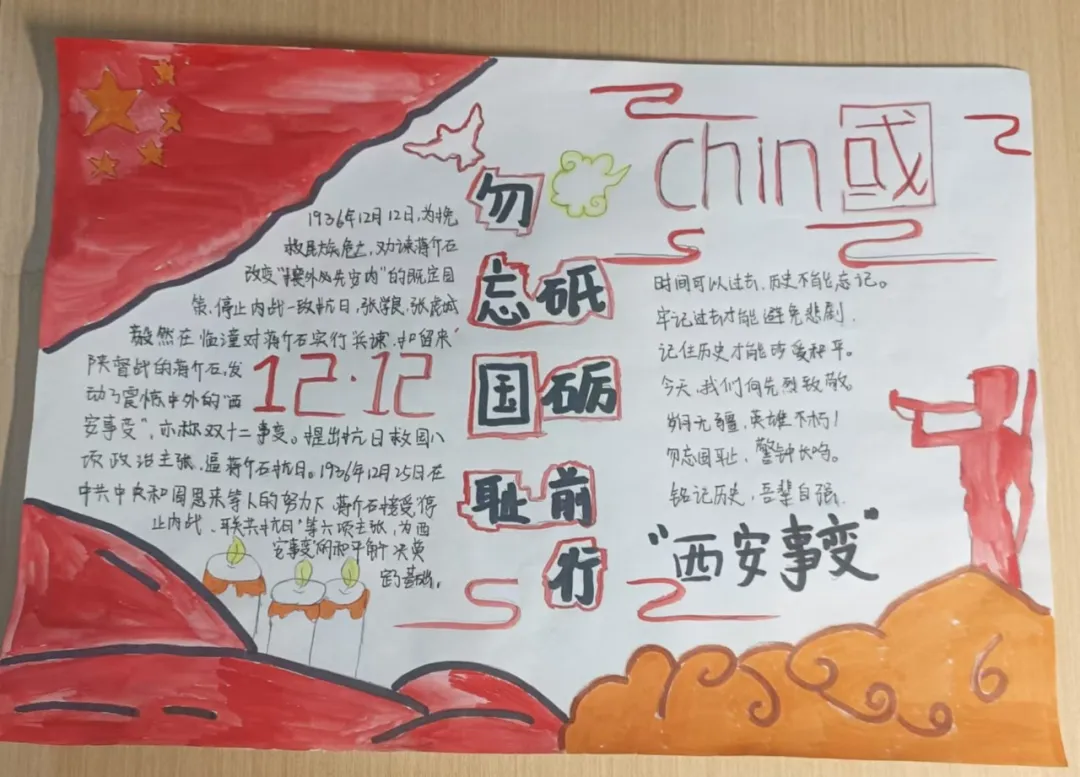 勿
忘 砥
国 砺
耻 前
行
chin國
1936年12月12日,为挽
救民族危亡,劝谏蒋介石
改变"攘外必先安内"的既定国
策,停止内战一致抗日,张学良,张虎城
毅然在临潼对蒋介石实行兵谏,扣留来
陕督战的蒋介石,发
动了震憾中外的"西
安事变",亦称双十二事变。提出抗日救国八
项政治主张,逼蒋介石抗日。1936年12月25日在
中共中央和周恩来等人的努力下 蒋介石接受"停
止内战、联共抗日"等六项主张,为西
安事变"的和平解决奠
定了基础。
12·12
时间可以过去,历史不能忘记。
牢记过去才能避免悲剧.
记住历史才能珍爱和平。
今天,我们向先烈致敬。
岁月无疆,英雄不朽!
勿忘国耻,警钟长鸣。
铭记历史,吾辈自强.
"西安事变"